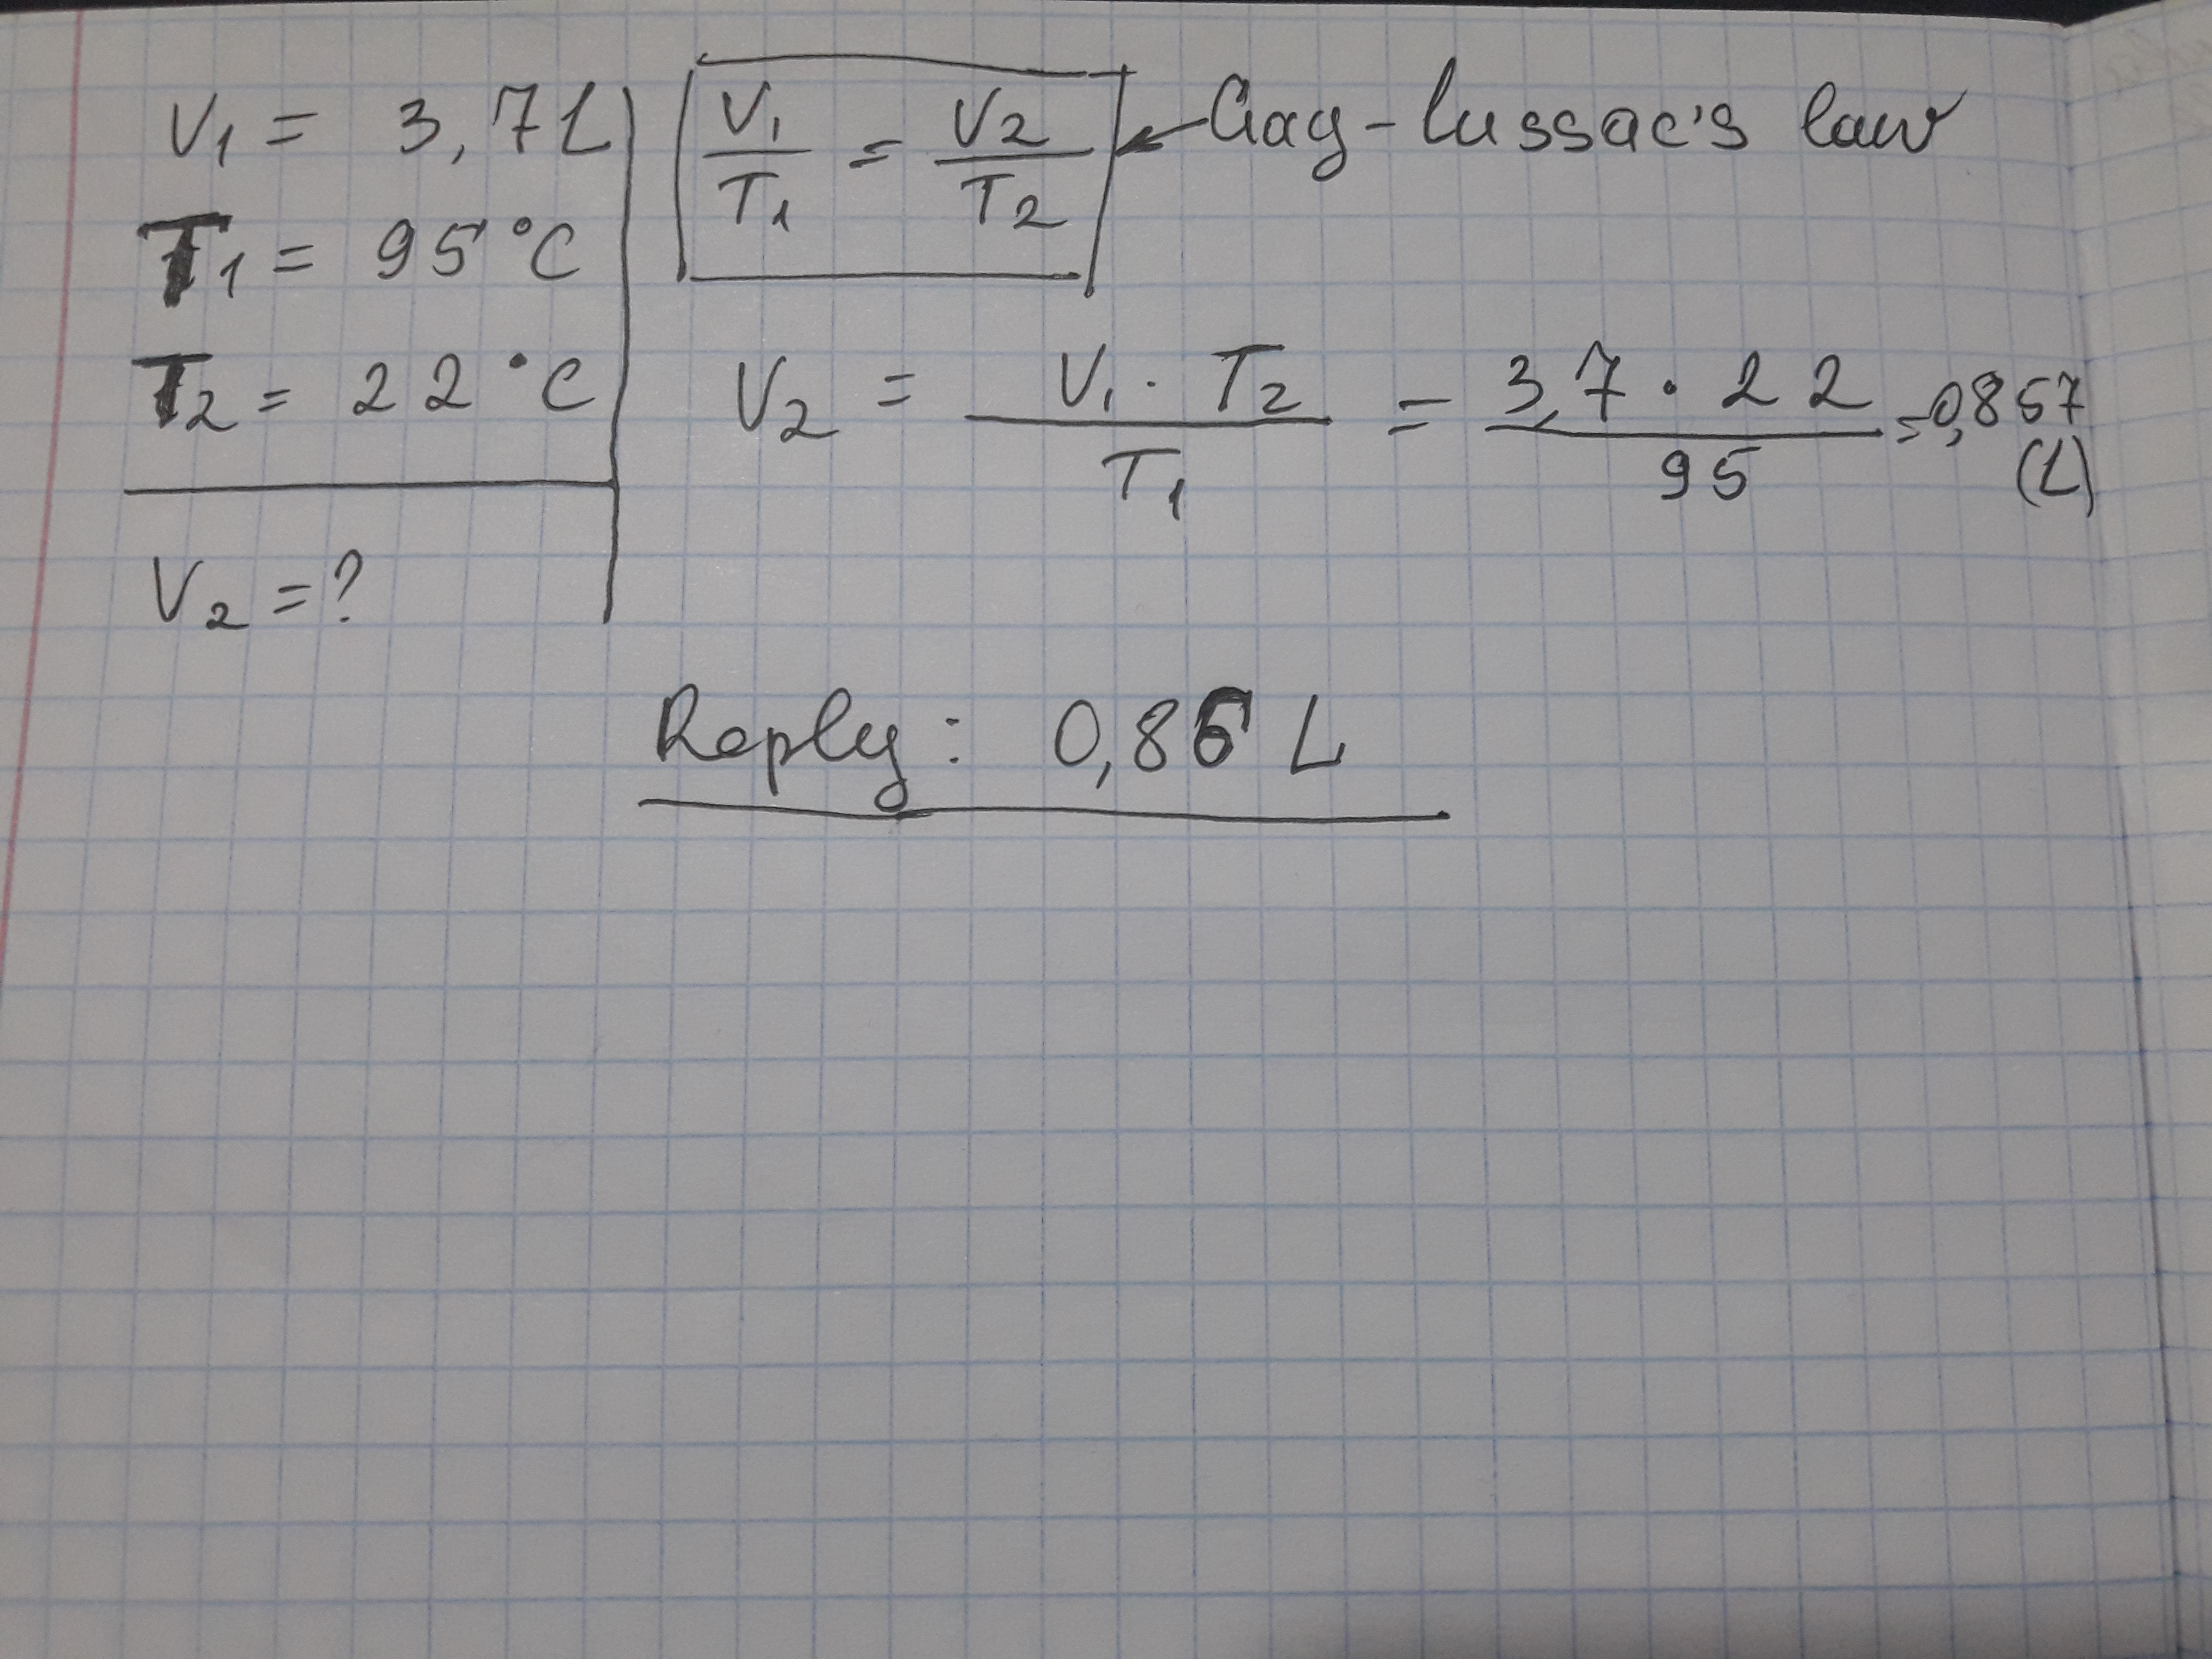 V1 = 3,7L
T1 = 95°C
T2 = 22°C
V2 = ?
V1/T1 = V2/T2 ← Gay-lussac's law
V2 = V1·T2/T1 = 3,7·22/95 = 0,857 (L)
Reply: 0,86 L